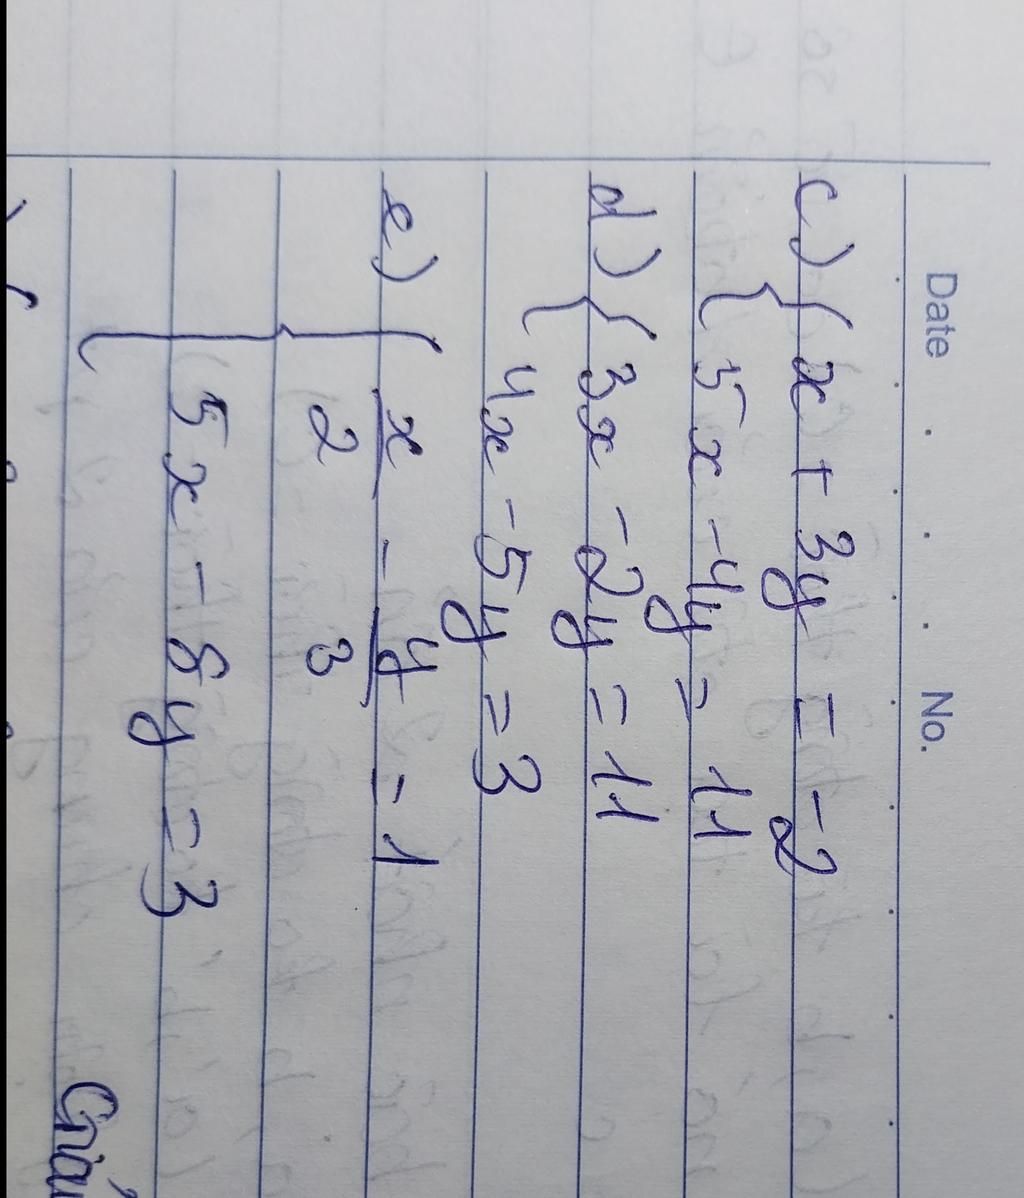 Date . . . No.
c) { x + 3y = -2
5x - 4y = 11
d) { 3x - 2y = 11
4x - 5y = 3
e) { x/2 - y/3 = 1
5x - 8y = 3